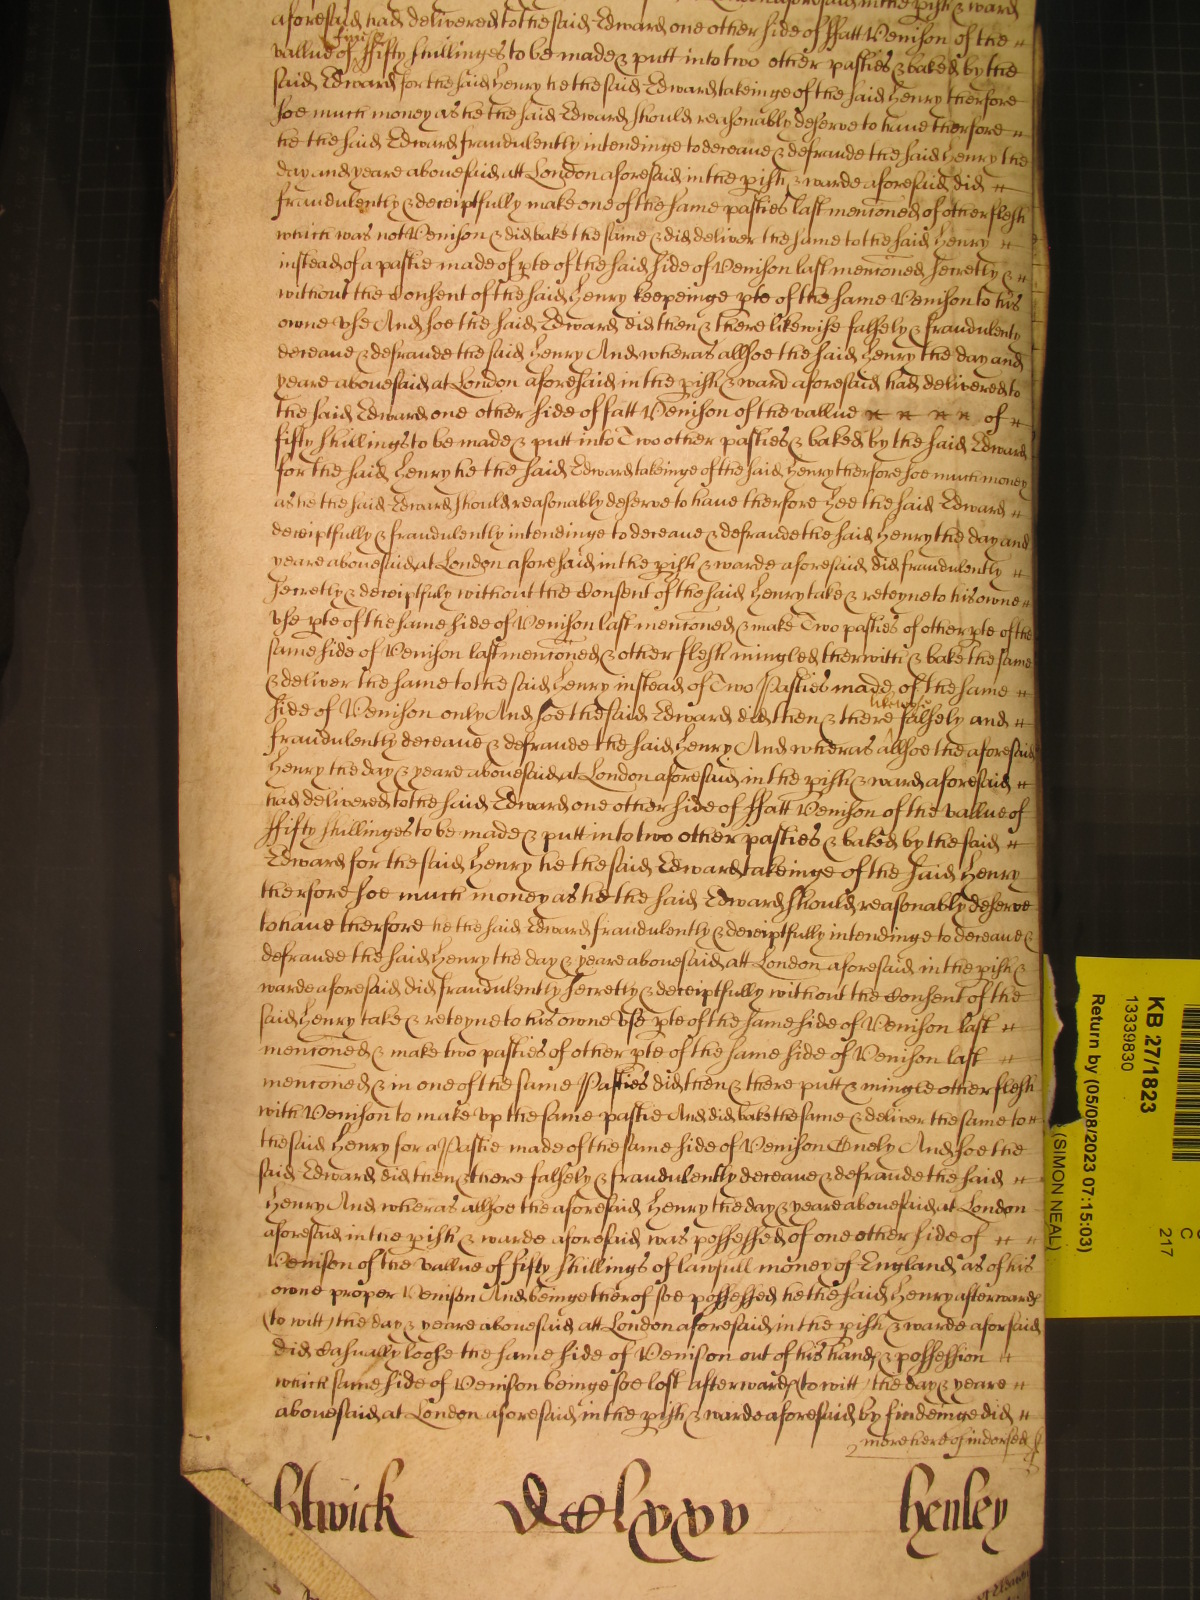 aforesaid had delivered to the said Edward one other side of ffatt Venison of the
vallue of ffifty shillinges to be made & putt into two other pasties & baked by the
said Edward for the said Henry he the said Edward takeinge of the said Henry therfore
soe much money as he the said Edward should reasonably deserve to haue therfore
he the said Edward fraudulently intendinge to deceaue & defraude the said Henry the
day and yeare abouesaid att London aforesaid in the pish & warde aforesaid did
fraudulently & deceiptfully make one of the same pasties last mencioned of other flesh
which was not Venison & did bake the same & did deliver the same to the said Henry
instead of a pastie made of pte of the said side of Venison last mencioned secretly &
without the Consent of the said Henry keepeinge pte of the same Venison to his
owne vse And soe the said Edward did then & there likewise falsely & fraudulently
deceaue & defraude the said Henry And wheras allsoe the said Henry the day and
yeare abouesaid at London aforesaid in the pish & ward aforesaid had delivered to
the said Edward one other side of ffatt Venison of the vallue of
fifty shillings to be made & putt into Two other pasties & baked by the said Edward
for the said Henry he the said Edward takeinge of the said Henry therfore soe much money
as he the said Edward should reasonably deserve to haue therfore Hee the said Edward
deceiptfully & fraudulently intendinge to deceaue & defraude the said Henry the day and
yeare abouesaid at London aforesaid in the pish & warde aforesaid did fraudulently
secretly & deceiptfuly without the Consent of the said Henry take & reteyne to his owne
vse pte of the same side of Venison last mencioned & make Two pasties of other pte of the
same side of Venison last mencioned & other flesh mingled therwith & bake the same
& deliver the same to the said Henry instead of Two Pasties made of the same
side of Venison only And soe the said Edward did then & there likewise falsely and
fraudulently deceaue & defraude the said Henry And wheras allsoe the aforesaid
Henry the day & yeare abouesaid at London aforesaid in the pish & ward aforesaid
had delivered to the said Edward one other side of ffatt Venison of the vallue of
ffifty shillinges to be made & putt into two other pasties & baked by the said
Edward for the said Henry he the said Edward takeinge of the said Henry
therfore soe much money as he the said Edward should reasonably deserve
to haue therfore he the said Edward fraudulently & deceiptfully intendinge to deceaue &
defraude the said Henry the day & yeare abouesaid att London aforesaid in the pish &
warde aforesaid did fraudulently secretly & deceiptfully without the Consent of the
said Henry take & reteyne to his owne vse pte of the same side of Venison last
mencioned & make two pasties of other pte of the same side of Venison last
mencioned & in one of the same Pasties did then & there putt & mingle other flesh
with Venison to make vp the same pastie And did bake the same & deliver the same to
the said Henry for a Pastie made of the same side of Venison Onely And soe the
said Edward did then & there falsely & fraudulently deceaue & defraude the said
Henry And wheras allsoe the aforesaid Henry the day & yeare abouesaid at London
aforesaid in the pish & warde aforesaid was possessed of one other side of
Venison of the vallue of fifty shillings of lawfull money of England as of his
owne proper Venison And beinge therof soe possessed he the said Henry afterwards
(to witt) the day & yeare abouesaid att London aforesaid in the pish & warde aforsaid
did Casually loose the same side of Venison out of his hands & possession
which same side of Venison beinge soe lost afterwards (to witt) the day & yeare
abouesaid at London aforesaid in the pish & warde aforesaid by findeinge did
more hereof indorsed
Henley
KB 27/1823
13339830
Return by (05/08/2023 07:15:03)
(SIMON NEAL)
C
217